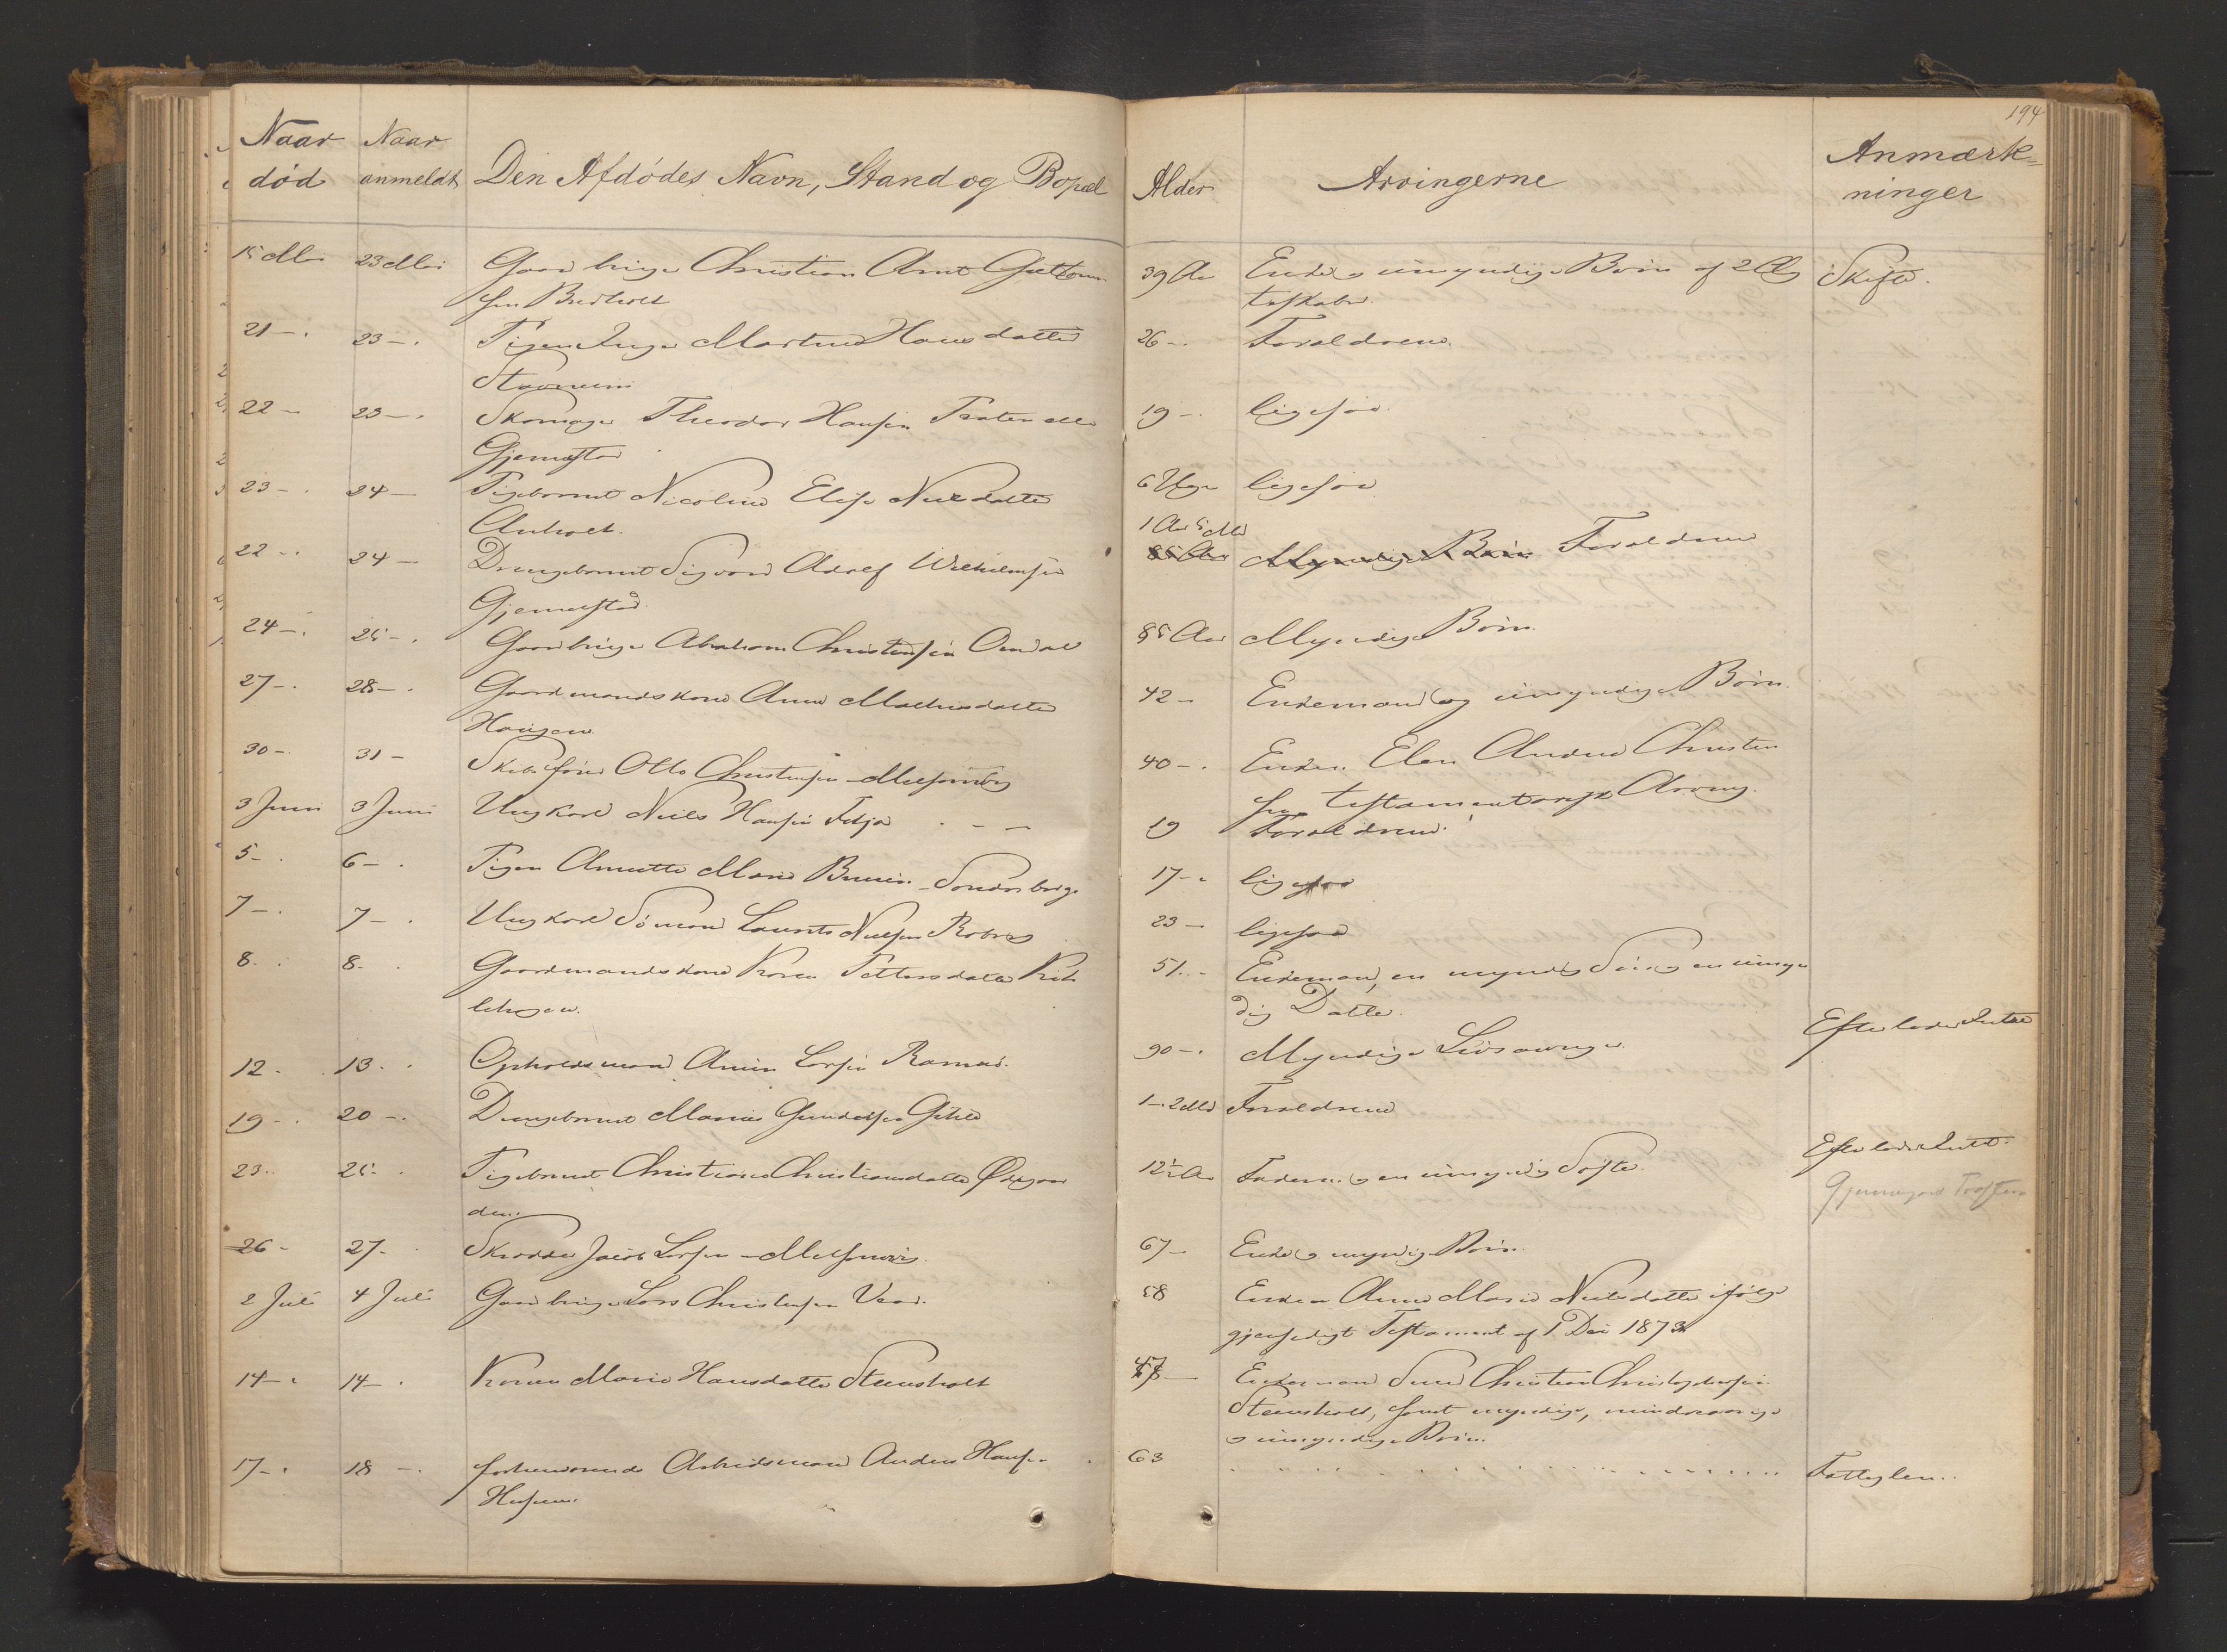 194
Naar død
Naar anmeldt
Den Afdødes Navn, Stand og Bopæl
Alder
Arvingerne
Anmærkninger
15 Mai 23 Mai Gaardbruger Christian Arnt Guttorm- 39 Aar Enke og umyndige Børn af 2 Æg Skifte.
sen Bredholt teskaber.
21 -. 23 -. Pigen Inger Martine Hansdatter 26 -. Forældrene.
Stavnum
22 - 23 -. Skomager Theodor Hansen Traten eller 19 -. ligesaa.
Gjemestad
23 -. 24 - Pigebarnet Nicoline Elise Nilsdatter 6 Uger ligesaa
Anholt.
1 Aar 5 Md
22 -. 24 - Drengebarnet Sigvard Adolf Wilhelmsen 85 Aar Myndige Børn Forældrene
Gjemestad
24 -. 25 -. Gaardbruger Abraham Christensen Omdal 85 Aar Myndige Børn.
27 -. 28 -. Gaardmandskone Anne Mathisdatter 42 - Enkemand og umyndige Børn.
Haugen
30 -. 31 - Skibsfører Otto Christensen Melsomvig 40 -. Enken Elen Andrea Christen
sen testamentarisk Arving.
3 Juni 3 Juni Ungkarl Niels Hansen Feßja - - - 19 Forældrene.
5 -. 6 -. Pigen Annette Marie Bruun Sondersborg 17 -. ligesaa
7 -. 7 -. Ungkarl Simon Laurits Nilsen Robræg 23 - ligesaa
8. . 8. . Gaardmandskone Karen Pettersdatter Kit 51. - Enkemand, en myndig Søn og en umyn
lehagen. dig Datter.
12 - . 13. . Opholdsmand Amun Larsen Ramnæs. 90 -. Myndige Livsarvinger. Efterlader Intet
19 -. 20 -. Drengebarnet Marius Gundersen Gihle 1 - 2 Md Forældrene
23. . 25 . Pigebarnet Christiane Christiansdatter Ødegaar 12½ Aar Faderen og en umyndig Søster. Efterlader Intet.
den. Gjennegaaet
26 - 27. Skrædder Jacob Larsen Melsomvig. 67 - Enke og myndige Børn.
2 Juli 4 Juli Gaardbruger Lars Christensen Vaar. 58 Enken Anne Marie Nielsdatter ifølge
gjensidigt Testament af 1 Dec 1873
14 -. 14 -. Karen Marie Hansdatter Steensholt 47 - Enkemand Christian Christophersen
Steensholt, samt myndige, mindreaarige
og umyndige Børn.
17 -. 18 -. forhenværende Arbeidsmand Anders Hansen 63 Fattiglem..
Husum.